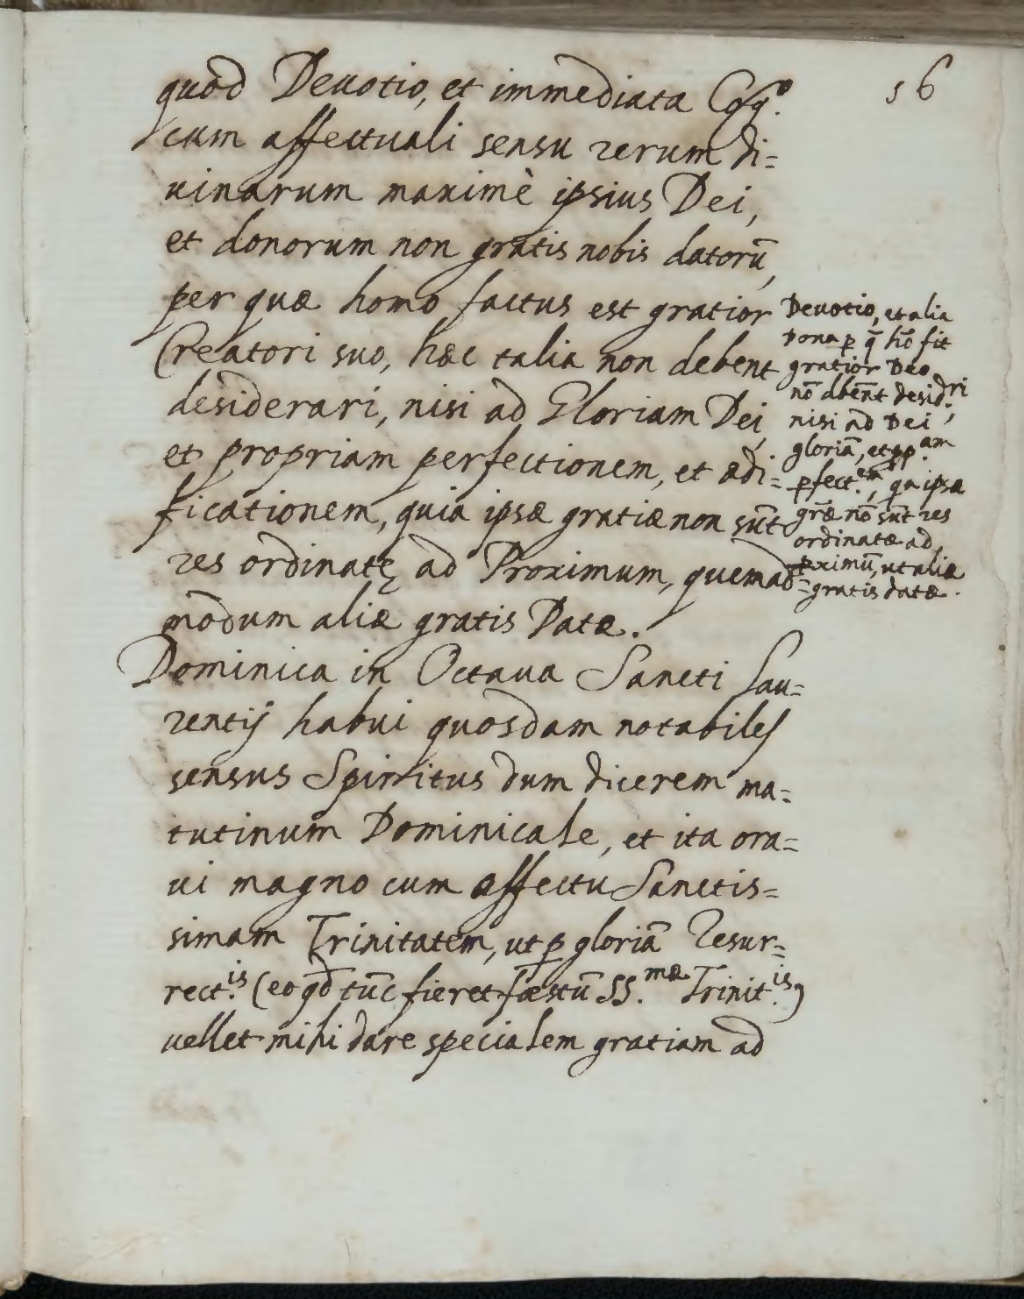 56
quod Deuotio, et immediata Cog.º
cum affectuali sensu rerum di=
uinarum maximè ipsius Dei,
et donorum non gratis nobis datorū,
per quæ homo factus est gratior
Creatori suo, hæc talia non debent
desiderari, nisi ad Gloriam Dei,
et propriam perfectionem, et ædi=
ficationem, quia ipsæ gratiæ non sūt
res ordinatę ad Proximum, quemad=
modum aliæ gratis Datæ.
Dominica in Octaua Sancti Lau=
rentij habui quosdam notabiles
sensus Spiritus dum dicerem ma=
tutinum Dominicale, et ita ora=
ui magno cum affectu Sanctis=
simam Trinitatem, ut ꝑ gloriā Resur=
rect.is (eo qd̄ tūc fieret fæstū SS.mæ Trinit.is)
uellet mihi dare specialem gratiam ad
Deuotio, et alia
Dona ꝑ q̄ hō fit
gratior Deo
nō dbēnt desid.ri,
nisi ad Dei
gloriā, et pp.am
ꝑfect.em, qa ipsæ
grǣ nō sūt res
ordinatæ ad
ꝓximū, ut aliæ
gratis datæ.